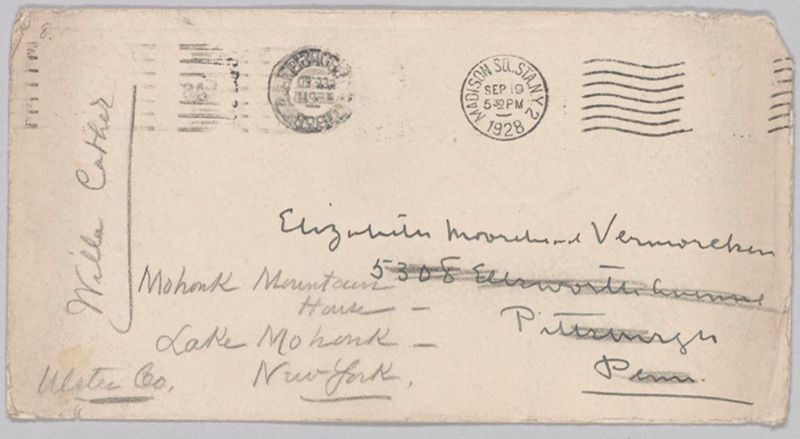 8.
MADISON SQ. STA. N.Y. 2
SEP 19
5 30 PM
1928
Willa Cather
Elizabeth Moorhead Vermorcken
5308 Ellsworth Avenue
Pittsburgh
Penn.
Mohonk Mountain
House –
Lake Mohonk –
Ulster Co. New York.